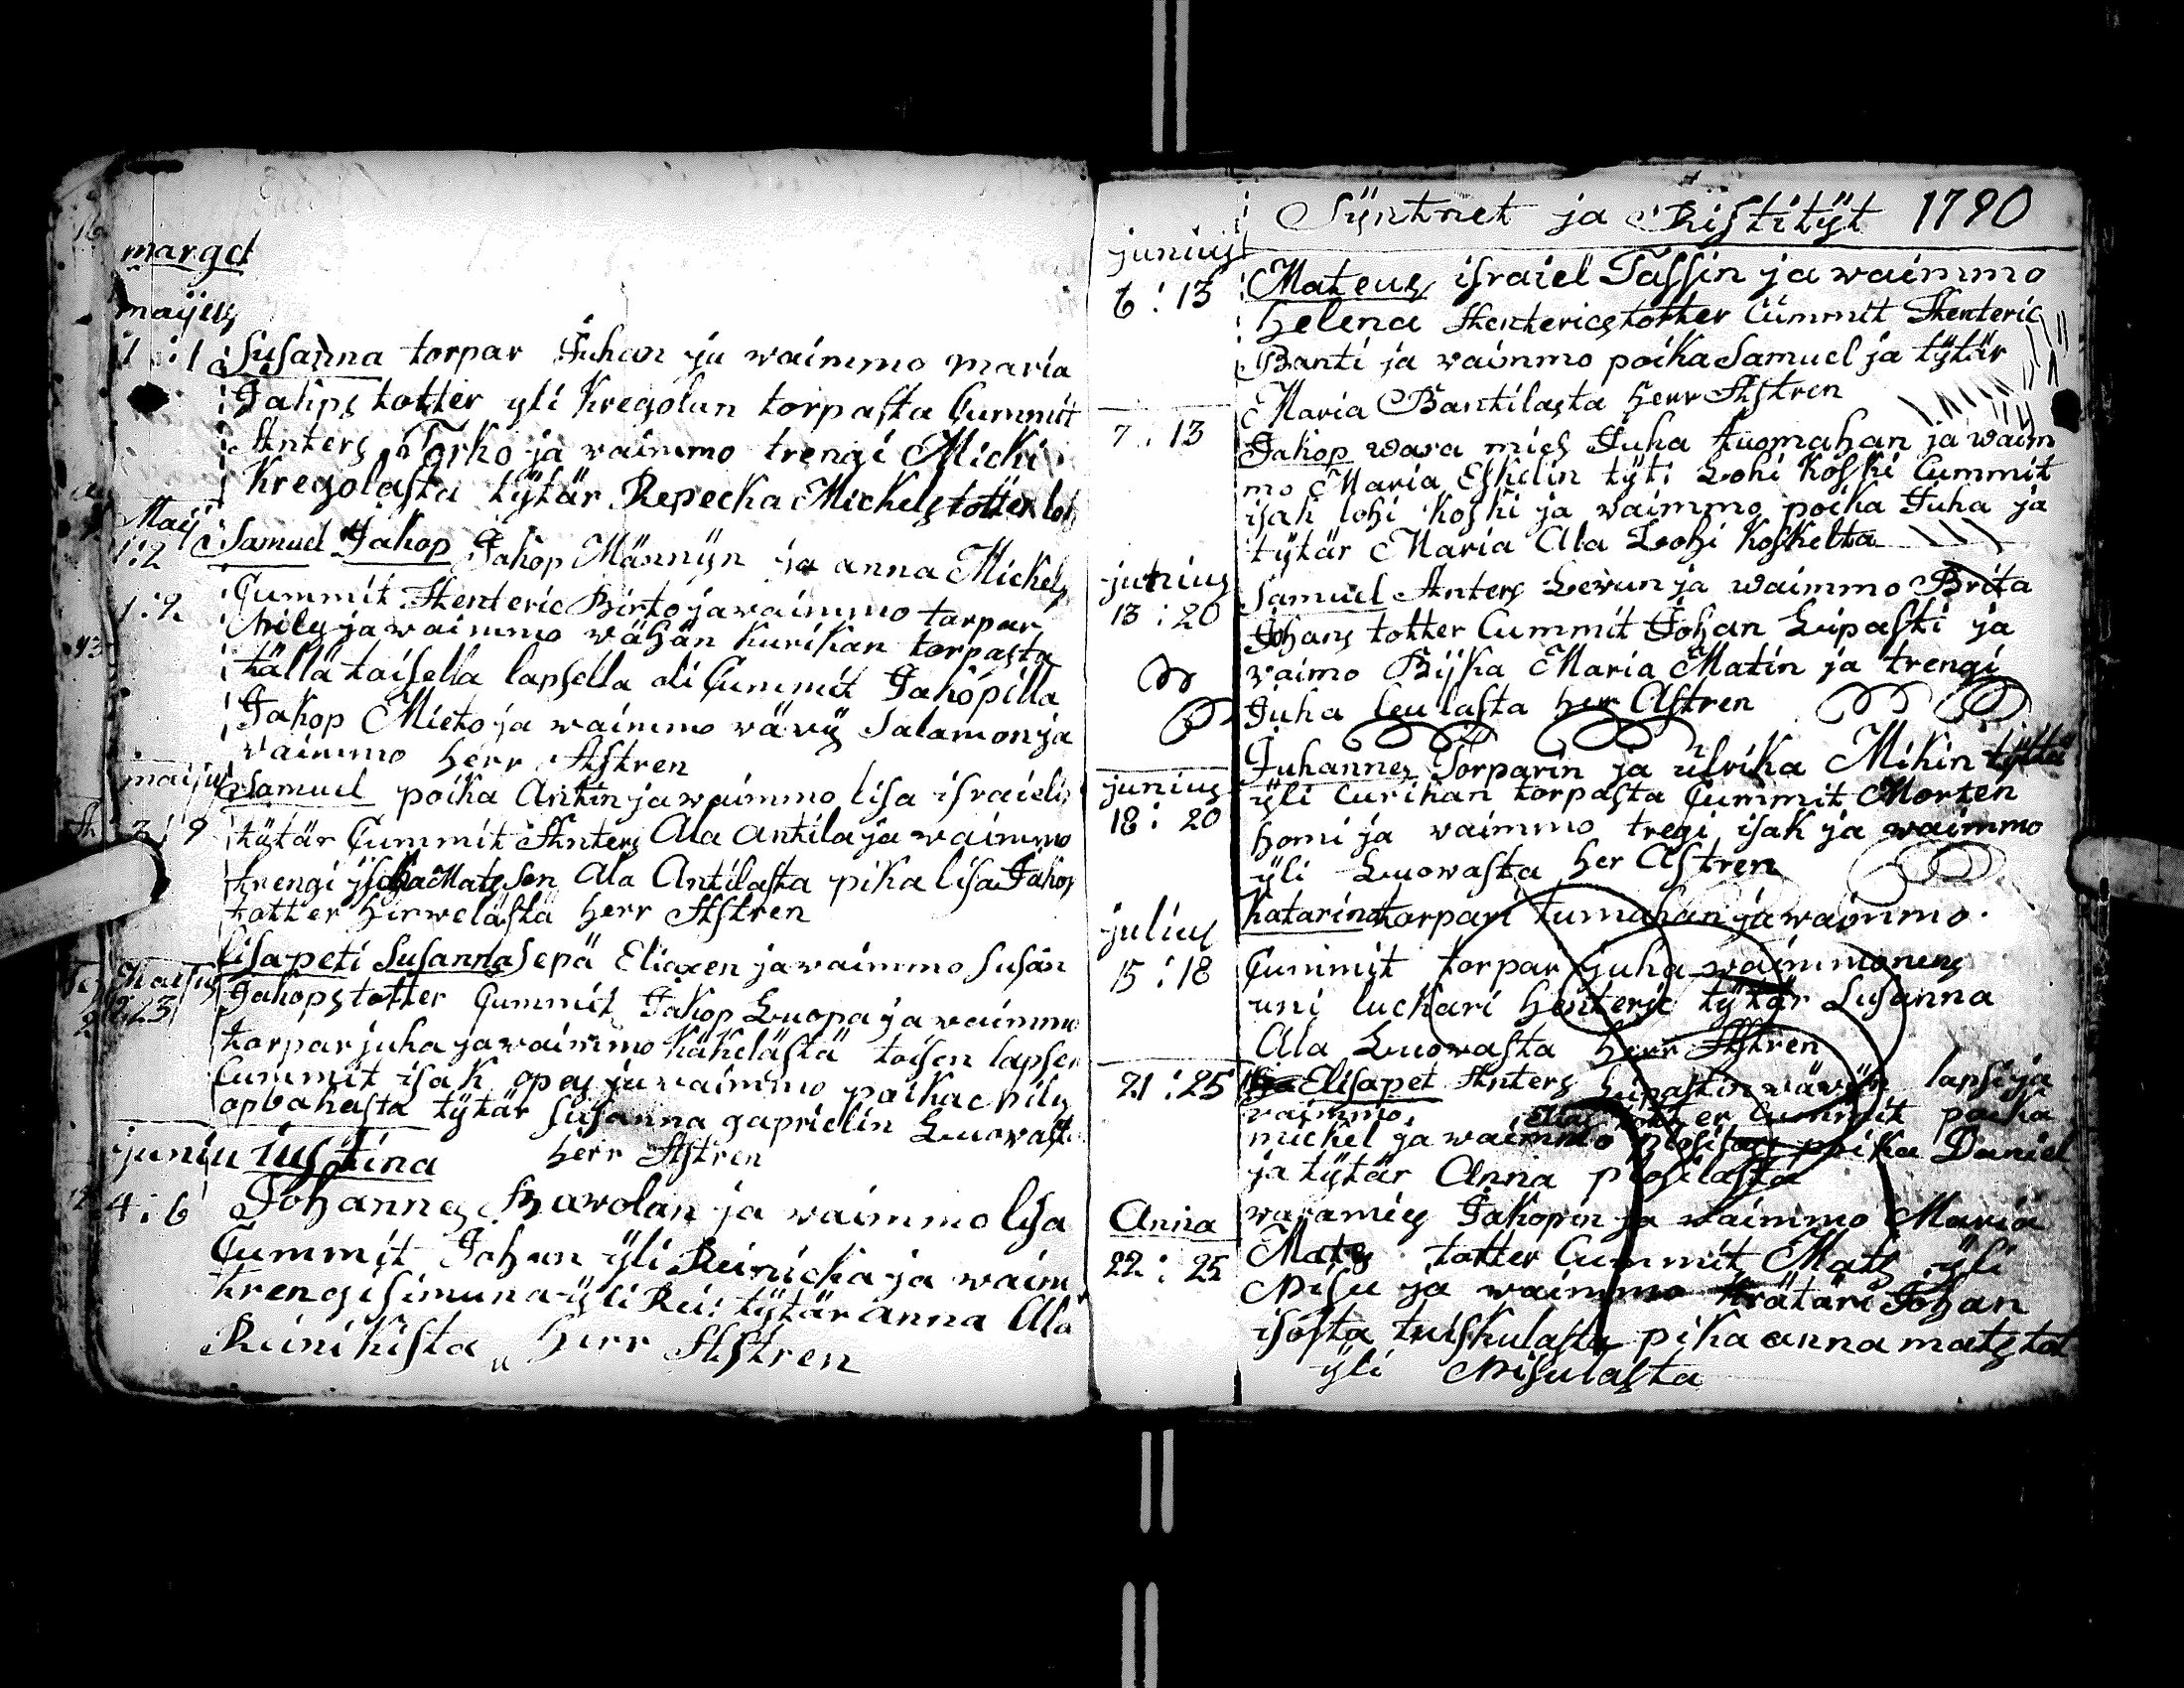 margct
maijus
1:1 Susanna torpar Juhan ja waimmo maria
Jakips totter yli Kregolan torpasta Cummit
Anters Torko ja waimmo trengi Micki
Kregolasta tytär Repecka Mickels totter
Maij Samuel Jakop Jakop Männyn ja anna Mickels
1:2
1:2 Cummit Henteric Birto ja waimmo torpar
Nils ja waimmo wähän Kurikan torpasta
tällä toisella lapsella oli Cummit Jakopilla
Jakop Mieto ja waimmo wävy Salamon ja
waimmo herr Astren
maijus Samuel poika Antin ja waimmo lisa israielis
3:9 tytär Cummit Anters Ala Antila ja waimmo
trengi Matsson Ala Antilasta pika lisa Jakop
totter hirwelästä herr Astren
lisapeti Susanna sepä Eliaxen ja waimmo Susan
Maijus Jakops totter Cummit Jakop Luopa ja waimmo
23 torpar juha ja waimmo Kähkelästä toisen lapsen
Cummit isak opas ja waimmo poika Nils
opbahasta tytär Susanna gaprielin Luowasta
junius iustina herr Astren
4:6 Johannes Hawolan ja waimmo lisa
Cummit Johan yli Reinicka ja waim
trengi simuna yli Rei: tytär anna Ala
Reinikista herr Astren
Syntnet ja Ristityt 1790
junius
6:13 Mateus israiel Tassin ja waimmo
helena Henterics totter Cummit Henteric
Banti ja waimmo poika Samuel ja tytär
Maria Bantilasta herr Astren
7:13 Jakop wara mies Juha tuomahan ja waim
mo Maria Eskelin tyt: Lohi Koski Cummit
isak lohi Koski ja waimmo poika Juha ja
tytär Maria Ala Lohi Koskelta
junius Samuel Anters Lewun ja waimmo Brita
13:20 Johans totter Cummit Johan Lipasti ja
waimo Bijka Maria Matin ja trengi
Juha leulasta herr Astren
Juhannes Torparin ja ulrika Mikin tytti
junius yli Curikan torpasta Cummit Morten
18:20 homi ja waimmo tregi isak ja waimmo
yli Luowasta her Astren
julius Katarina torpari tumahan ja waimmo
15:18 Cummit torpar juha waimmonens
uni luckari henteric tytär Susanna
Ala Luowasta herr Astren
21:25 Elisapet Anters hipastin wävyn lapsi ja
waimmo Elias totter Cummit poika
mickel ja waimmo poika Daniel
ja tytär Anna plosilasta
Anna waramies Jakopin ja waimmo Maria
22:25 Mats totter Cummit Mats yli
Nisu ja waimmo krätäri Johan
isosta tuiskulasta pika anna mats tot
yli Nisulasta